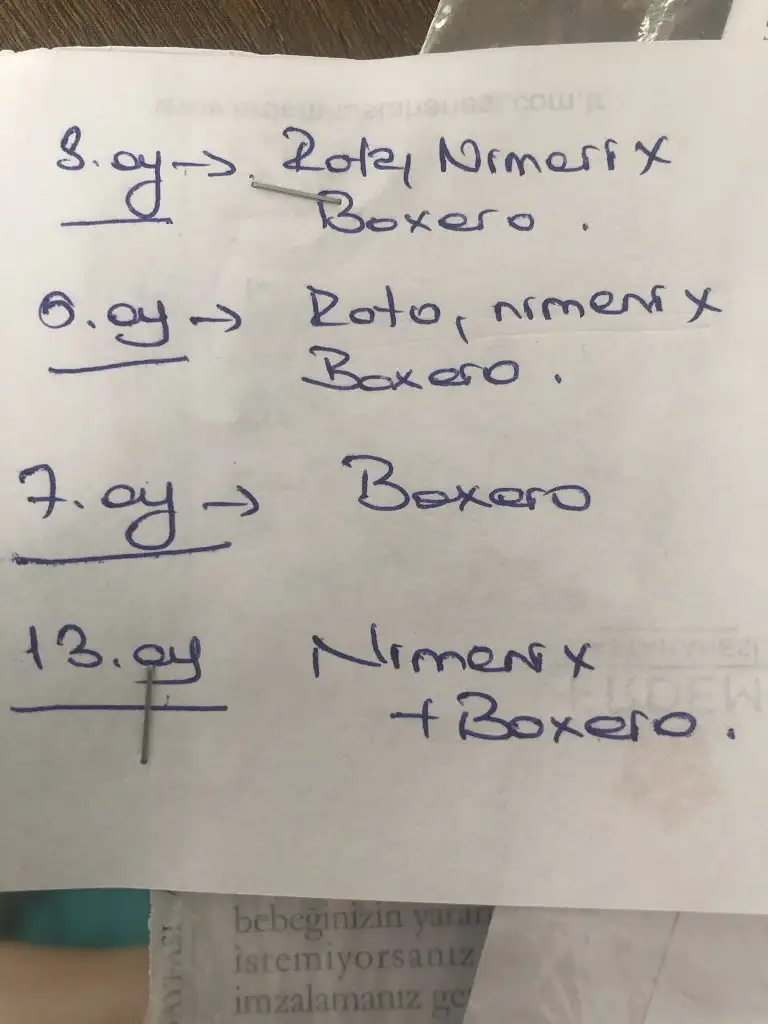 3. ay → Rota, Nimenix
Boxero.
5. ay → Rota, nimenix
Boxero.
7. ay → Boxero
13. ay Nimenix
+ Boxero.
bebeğinizin
istemiyorsanız
imzalamanız